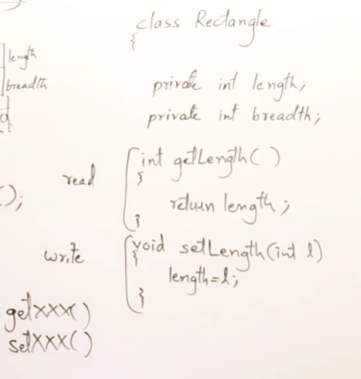 class Rectangle
{
length
breadth
private int length;
private int breadth;
int getLength()
{
read
return length;
);
}
write
void setLength(int l)
{
length=l;
}
getXXX()
setXXX()